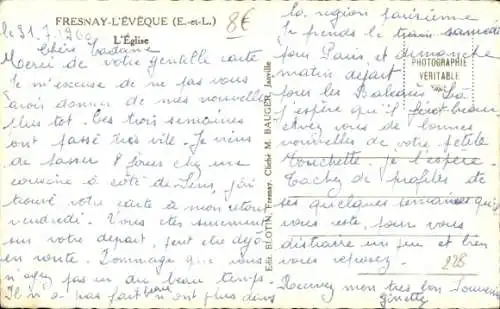 FRESNAY-L'ÉVÊQUE (E.-et-L.)
L'Église
8€
le 31.7.1960
Chère Madame
Merci de votre gentille carte
Je m'excuse de ne pas vous
avoir donner de mes nouvelles
plus tot. Ces trois semaines
ont passé très vite. Je viens
de passer 8 jours chez une
cousine à côté de Sens, j'ai
trouvé votre carte à mon retour
vendredi. Vous êtes surement
sur votre départ, peut être déjà
en route. Dommage que vous
n'ayez pas eu du beau temps.
Il n'a pas fait beau non plus dans
la région parisienne
Je prends le train samedi
pour Paris, et dimanche
matin départ
pour les Baléares. Là
j'espère qu'il fera beau
avez vous de bonnes
nouvelles de votre petite
je l'espère.
Tachez de profiter de
ces quelques semaines qui
vous reste, pour vous
distraire un peu et bien
vous reposez.
Recevez mon très bon souvenir
Ginette
PHOTOGRAPHIE
VÉRITABLE
Edit. BLOTIN, Fresnay, Cliché M. BAUGEN, Janville
228